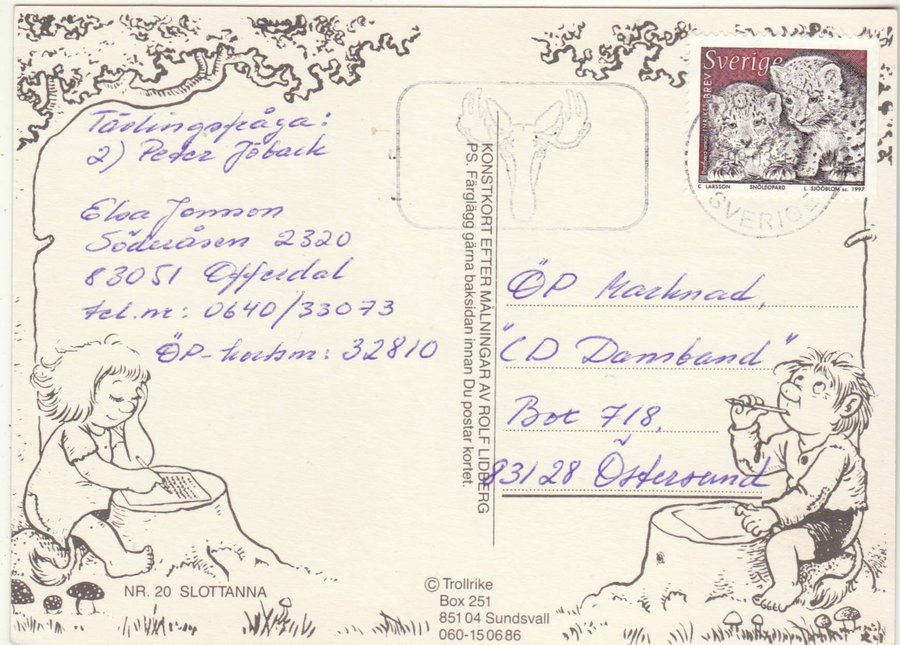 Tävlingsfråga:
2) Peter Jöback
Elsa Jonsson
Söderåsen 2320
83051 Offerdal
tel.nr: 0640/33073
ÖP-kortsnr: 32810
NR. 20 SLOTTANNA
KONSTKORT EFTER MÅLNINGAR AV ROLF LIDBERG
PS. Färglägg gärna baksidan innan Du postar kortet.
© Trollrike
Box 251
851 04 Sundsvall
060-15 06 86
Sverige
BREV
C LARSSON SNÖLEOPARD L. SJÖÖBLOM sc. 1997
SVERIGE
ÖP Marknad,
"CD Dansband"
Box 718,
83128 Östersund